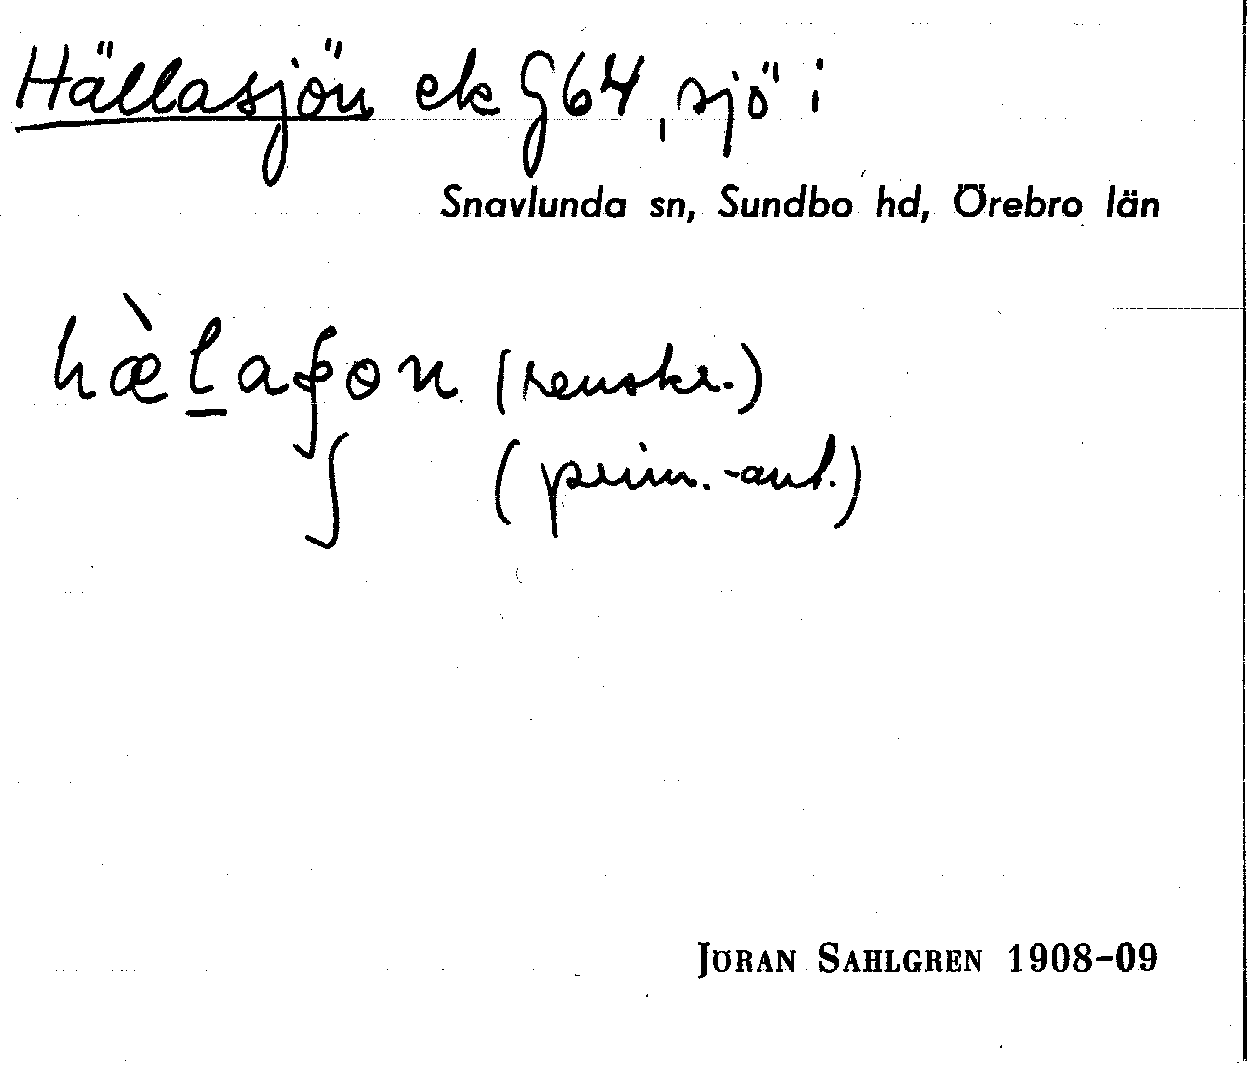 Hällasjön ek G64, sjö i
Snavlunda sn, Sundbo hd, Örebro län
hæ̀l̲aʃɵn (renskr.)
ʃ (prim.-ant.)
JÖRAN SAHLGREN 1908–09